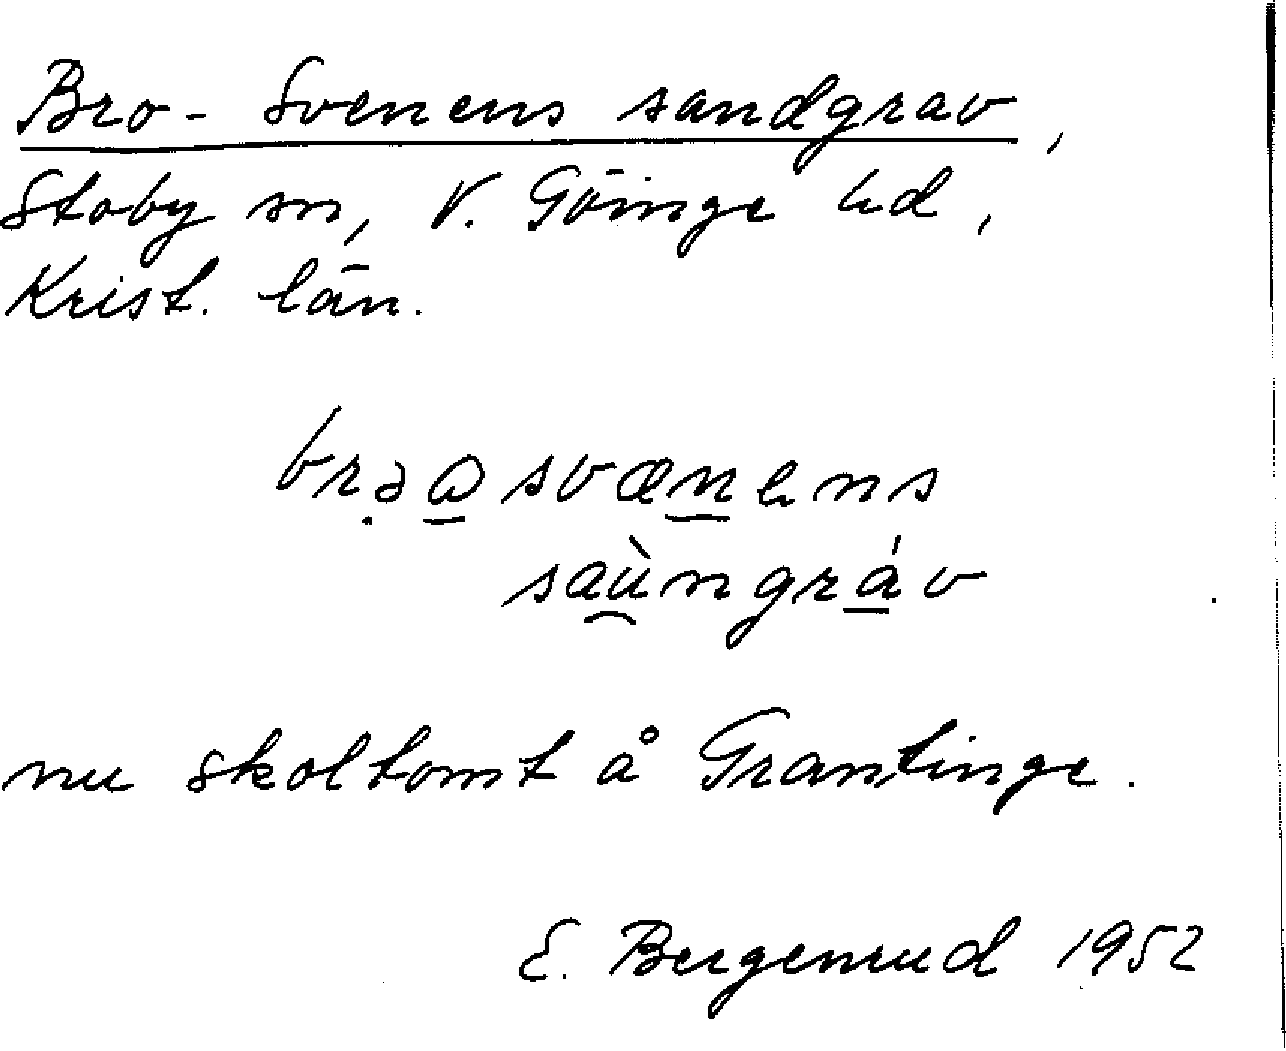 Bro-Svenens sandgrav,
Stoby sn, V. Göinge hd,
Krist. län.
brə̣a̱svæṉens
saùngráv
nu skoltomt å Grantinge.
E. Bergenrud 1952